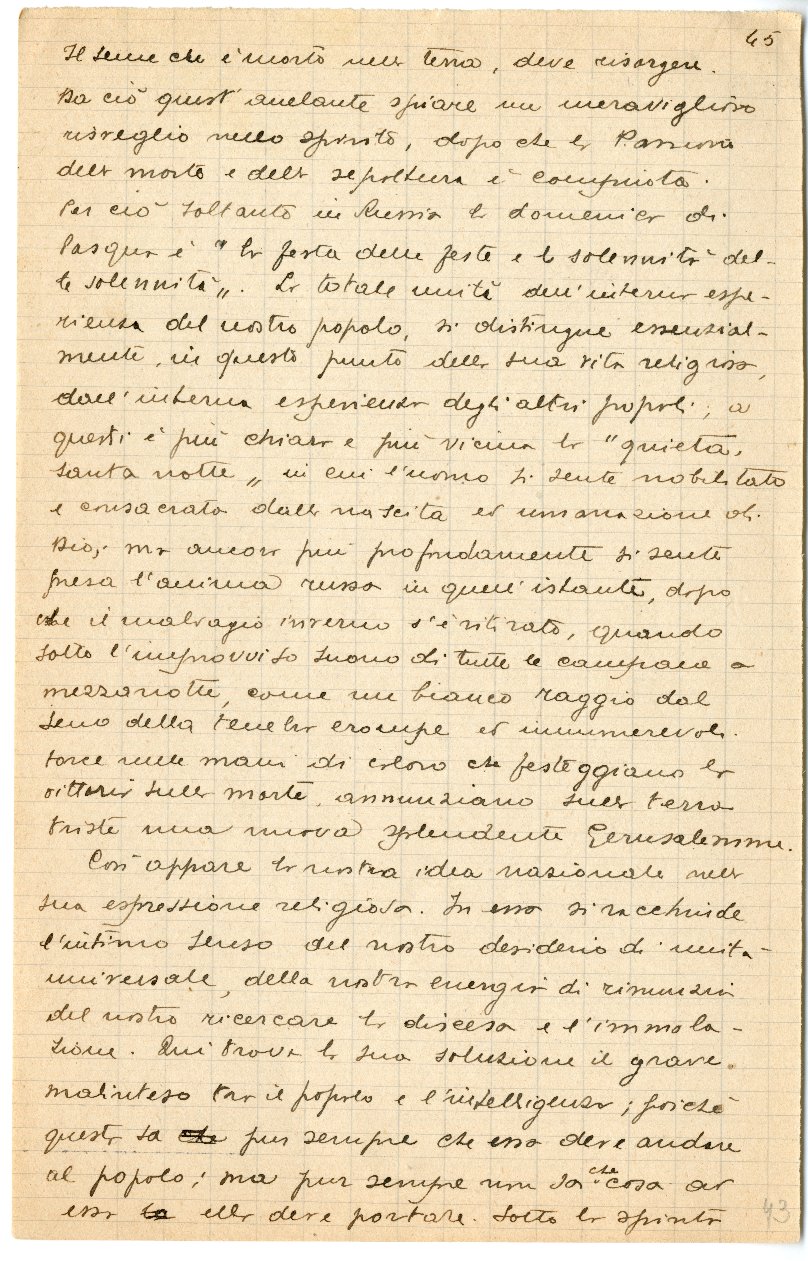 45
Il seme che è morto nella terra, deve risorgere.
Da ciò quest' anelante spiare un meraviglioso
risveglio nello spirito, dopo che la Passione
della morte e della sepoltura è compiuta.
Per ciò soltanto in Russia la domenica di
Pasqua è "la festa delle feste e la solennità del-
le solennità". La totale unità dell'interna espe-
rienza del nostro popolo, si distingue essenzial-
mente, in questo punto della sua vita religiosa,
dall'interna esperienza degli altri popoli; a
questi è più chiara e più vicina la "quieta,
santa notte" in cui l'uomo si sente nobilitato
e consacrato dalla nascita ed umanazione di
Dio; ma ancora più profondamente si sente
presa l'anima russa in quell'istante, dopo
che il malvagio inverno s'è ritirato, quando
sotto l'improvviso suono di tutte le campane a
mezzanotte, come un bianco raggio dal
seno della tenebra erompe ed innumerevoli
torce nelle mani di coloro che festeggiano la
vittoria sulla morte, annunziano sulla terra
triste una nuova splendente Gerusalemme.
Così appare la nostra idea nazionale nella
sua espressione religiosa. In essa si racchiude
l'intimo senso del nostro desiderio di unità
universale, della nostra energia di rinunzia
del nostro ricercare la discesa e l'immola-
zione. Qui trova la sua soluzione il grave
malinteso tra il popolo e l'intelligenza; poichè
questa sa che pur sempre che essa deve andare
al popolo; ma pur sempre non sa che cosa ad
esso la ella deve portare. Sotto la spinta
43